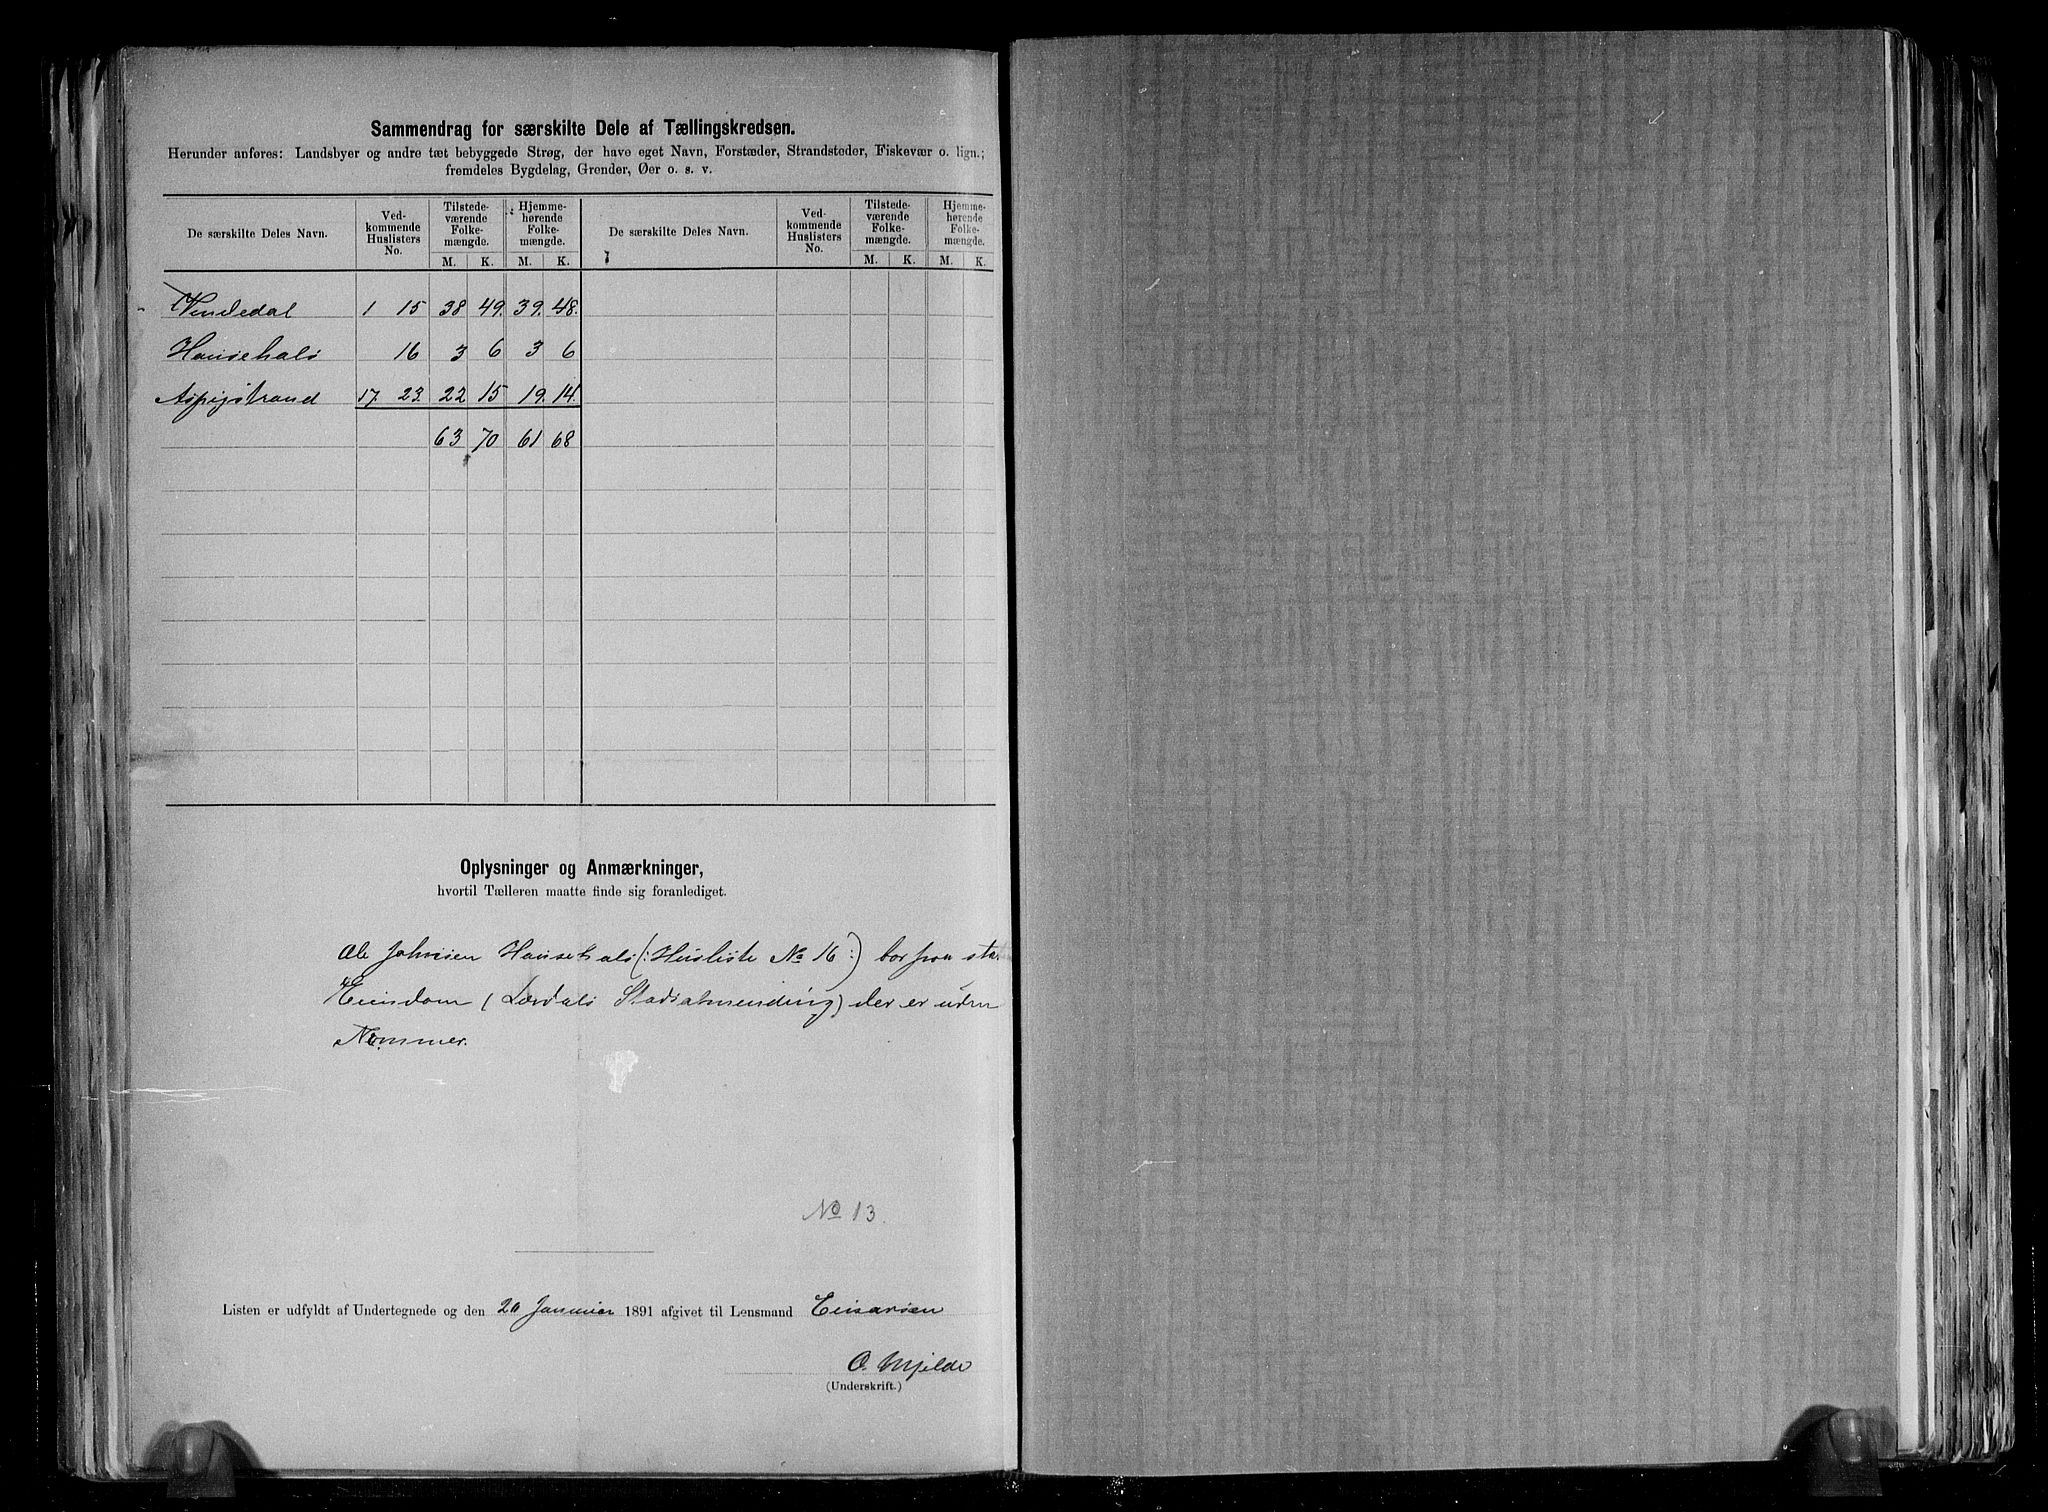 Sammendrag for særskilte Dele af Tællingskredsen.
Herunder anføres: Landsbyer og andre tæt bebyggede Strøg, der have eget Navn, Forstæder, Strandsteder, Fiskevær o. lign.;
fremdeles Bygdelag, Grender, Øer o. s. v.
De særskilte Deles Navn. Ved-kommende Huslisters No. Tilstede-værende Folke-mængde. Hjemme-hørende Folke-mængde. De særskilte Deles Navn. Ved-kommende Huslisters No. Tilstede-værende Folke-mængde. Hjemme-hørende Folke-mængde.
M. K. M. K. M. K. M. K.
Vindedal 1 15 38 49. 39. 48.
Hausehals 16 3 6 3 6
Aspigstrand 17. 23. 22 15 19. 14.
63 70 61 68
Oplysninger og Anmærkninger,
hvortil Tælleren maatte finde sig foranlediget.
Ole Johnsen Hausehals (: Husliste No 16 :) bor paa
Eiendom (Lærdals Stadsalmending) der er uden
Nommer.
No 13.
Listen er udfyldt af Undertegnede og den 20 Januar 1891 afgivet til Lensmand
O. Mjelde
(Underskrift.)